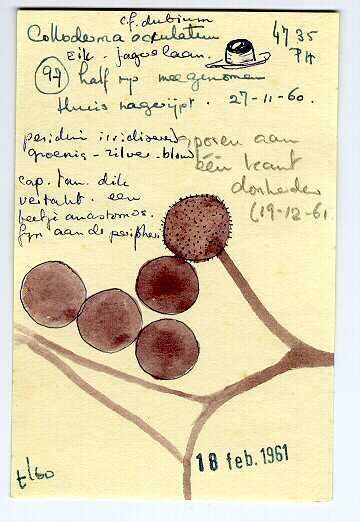 cf. dubium
Colloderma oculatum 4735
Eik - Jagerlaan. PH
97 half rijp meegenomen
Thuis nagerijpt. 27-11-60.
peridie irridiserend
groenig-zilver-blauw
sporen aan
één kant
donkerder
(19-12-61
cap. ton. dik
vertakt. een
beetje anastomos.
fijn aan de peripherie
18 feb. 1961
t/60